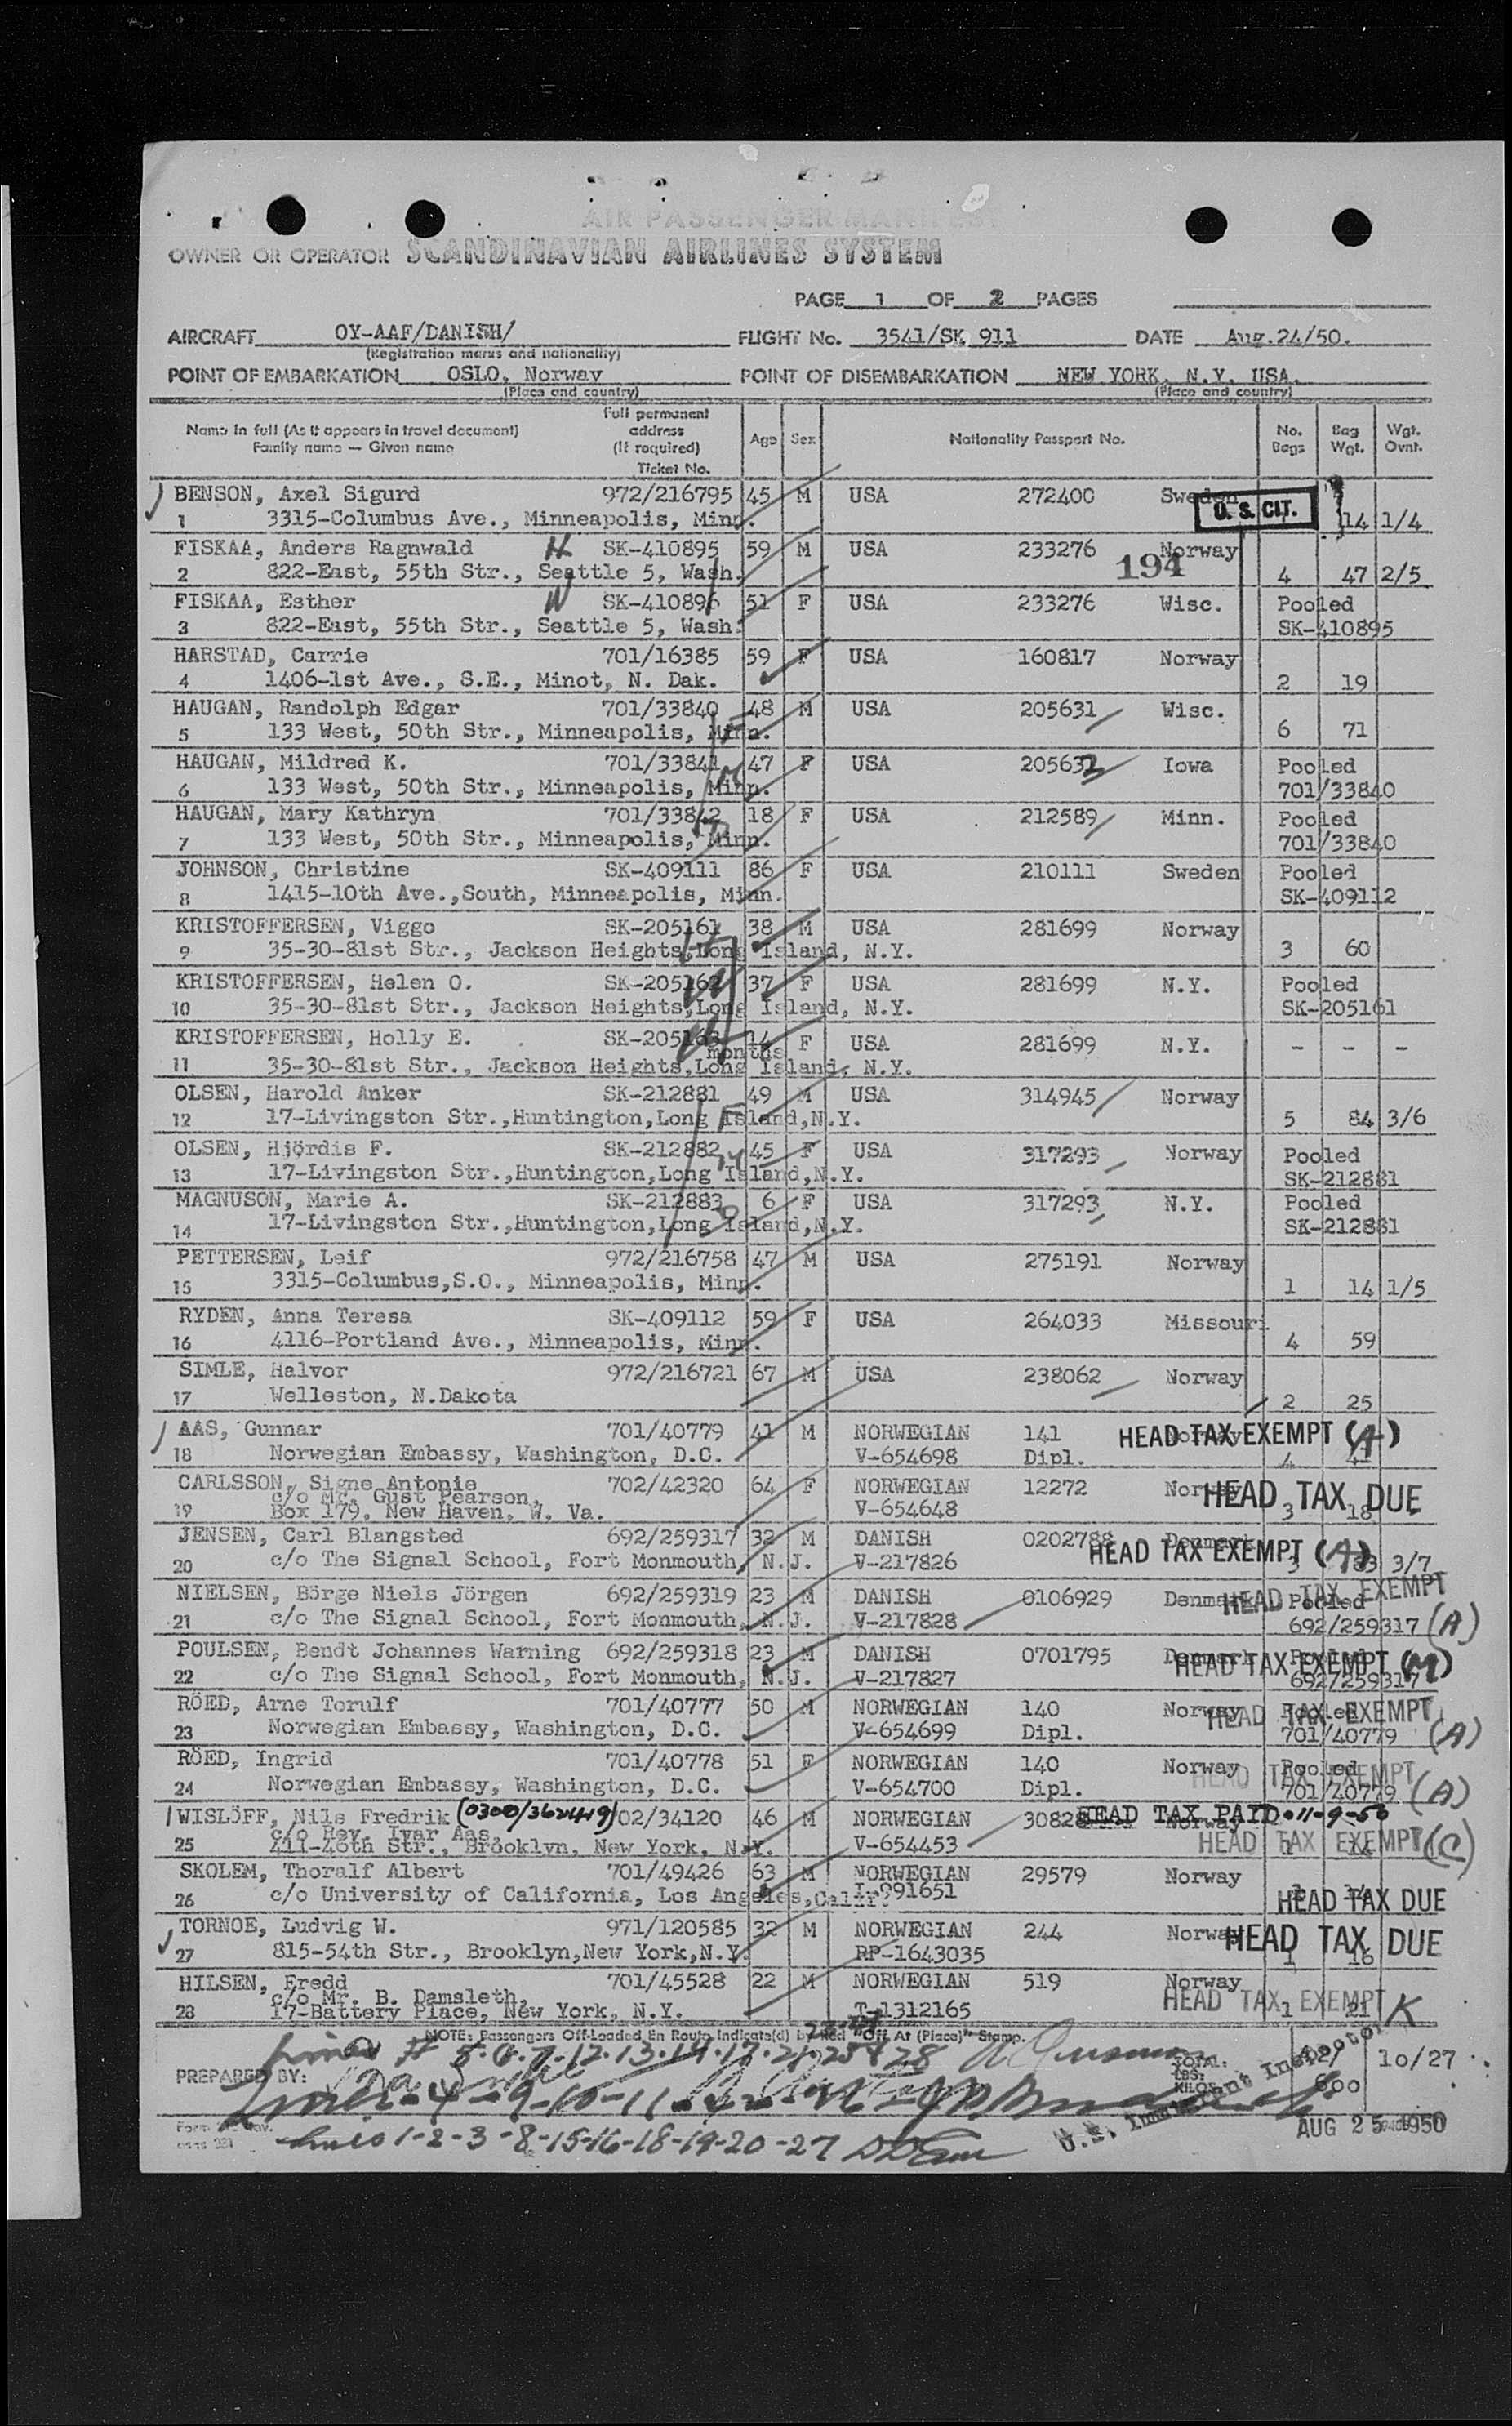 AIR PASSENGER MANIFEST
OWNER OR OPERATOR SCANDINAVIAN AIRLINES SYSTEM
PAGE 1 OF 2 PAGES
AIRCRAFT OY-AAF/DANISH/ FLIGHT No. 3541/SK 911 DATE Aug.24/50.
(Registration marks and nationality)
POINT OF EMBARKATION OSLO, Norway POINT OF DISEMBARKATION NEW YORK, N.Y. USA.
(Place and country) (Place and country)
Name in full (As it appears in travel document) Family name — Given name Full permanent address (if required) Ticket No. Age Sex Nationality Passport No. No. Bags Bag Wgt. Wgt. Ovnt.
BENSON, Axel Sigurd 972/216795 45 M USA 272400 Sweden U. S. CIT.
1 3315-Columbus Ave., Minneapolis, Minn. 14 1/4
FISKAA, Anders Ragnwald H SK-410895 59 M USA 233276 Norway
2 822-East, 55th Str., Seattle 5, Wash. 194 4 47 2/5
FISKAA, Esther W SK-410896 51 F USA 233276 Wisc. Pooled
3 822-East, 55th Str., Seattle 5, Wash. SK-410895
HARSTAD, Carrie 701/16385 59 F USA 160817 Norway
4 1406-1st Ave., S.E., Minot, N. Dak. 2 19
HAUGAN, Randolph Edgar 701/33840 48 M USA 205631 Wisc.
5 133 West, 50th Str., Minneapolis, Minn. 6 71
HAUGAN, Mildred K. 701/33841 47 F USA 205632 Iowa Pooled
6 133 West, 50th Str., Minneapolis, Minn. 701/33840
HAUGAN, Mary Kathryn 701/33842 18 F USA 212589 Minn. Pooled
7 133 West, 50th Str., Minneapolis, Minn. 701/33840
JOHNSON, Christine SK-409111 86 F USA 210111 Sweden Pooled
8 1415-10th Ave.,South, Minneapolis, Minn. SK-409112
KRISTOFFERSEN, Viggo SK-205161 38 M USA 281699 Norway
9 35-30-81st Str., Jackson Heights,Long Island, N.Y. 3 60
KRISTOFFERSEN, Helen O. SK-205162 37 F USA 281699 N.Y. Pooled
10 35-30-81st Str., Jackson Heights,Long Island, N.Y. SK-205161
KRISTOFFERSEN, Holly E. SK-205163 14 months F USA 281699 N.Y. - - -
11 35-30-81st Str., Jackson Heights,Long Island, N.Y.
OLSEN, Harold Anker SK-212881 49 M USA 314945 Norway
12 17-Livingston Str.,Huntington,Long Island,N.Y. 5 84 3/6
OLSEN, Hjördis F. SK-212882 45 F USA 317293 Norway Pooled
13 17-Livingston Str.,Huntington,Long Island,N.Y. SK-212881
MAGNUSON, Marie A. SK-212883 6 F USA 317293 N.Y. Pooled
14 17-Livingston Str.,Huntington,Long Island,N.Y. SK-212881
PETTERSEN, Leif 972/216758 47 M USA 275191 Norway
15 3315-Columbus,S.O., Minneapolis, Minn. 1 14 1/5
RYDEN, Anna Teresa SK-409112 59 F USA 264033 Missouri
16 4116-Portland Ave., Minneapolis, Minn. 4 59
SIMLE, Halvor 972/216721 67 M USA 238062 Norway
17 Welleston, N.Dakota 2 25
AAS, Gunnar 701/40779 41 M NORWEGIAN 141 Norway HEAD TAX EXEMPT (A)
18 Norwegian Embassy, Washington, D.C. V-654698 Dipl. 4 41
CARLSSON, Signe Antonie 702/42320 64 F NORWEGIAN 12272 Norway HEAD TAX DUE
c/o Mr. Gust Pearson,
19 Box 179, New Haven, W. Va. V-654648 3 18
JENSEN, Carl Blangsted 692/259317 32 M DANISH 0202788 Denmark HEAD TAX EXEMPT (A)
20 c/o The Signal School, Fort Monmouth, N.J. V-217826 3 83 3/7
NIELSEN, Börge Niels Jörgen 692/259319 23 M DANISH 0106929 Denmark Pooled HEAD TAX EXEMPT
21 c/o The Signal School, Fort Monmouth, N.J. V-217828 692/259317 (A)
POULSEN, Bendt Johannes Warning 692/259318 23 M DANISH 0701795 Denmark Pooled HEAD TAX EXEMPT
22 c/o The Signal School, Fort Monmouth, N.J. V-217827 692/259317
RÖED, Arne Torulf 701/40777 50 M NORWEGIAN 140 Norway Pooled HEAD TAX EXEMPT
23 Norwegian Embassy, Washington, D.C. V-654699 Dipl. 701/40779 (A)
RÖED, Ingrid 701/40778 51 F NORWEGIAN 140 Norway Pooled HEAD TAX EXEMPT
24 Norwegian Embassy, Washington, D.C. V-654700 Dipl. 701/40779 (A)
WISLÖFF, Nils Fredrik (0300/362419) 02/34120 46 M NORWEGIAN Norway HEAD TAX PAID 11-9-50
c/o Rev. Ivar Aas,
25 411-46th Str., Brooklyn, New York, N.Y. V-654453 HEAD TAX EXEMPT (C)
SKOLEM, Thoralf Albert 701/49426 63 M NORWEGIAN 29579 Norway
26 c/o University of California, Los Angeles,Calif. HEAD TAX DUE
TORNOE, Ludvig W. 971/120585 32 M NORWEGIAN 244 Norway HEAD TAX DUE
27 815-54th Str., Brooklyn,New York,N.Y. RP-1643035 1 16
HILSEN, Fredd 701/45528 22 M NORWEGIAN 519 Norway
c/o Mr. B. Damsleth,
28 17-Battery Place, New York, N.Y. T-1312165 1 21 HEAD TAX EXEMPT K
NOTE: Passengers Off-Loaded En Route Indicate(d) by Red "Off At (Place)" Stamp.
PREPARED BY: TOTAL: LBS: KILOS: 600 10/27
Lines 4-9-10-11
U.S. Immigrant Inspector
lines 1-2-3-8-15-16-18-19-20-27
AUG 25 1950